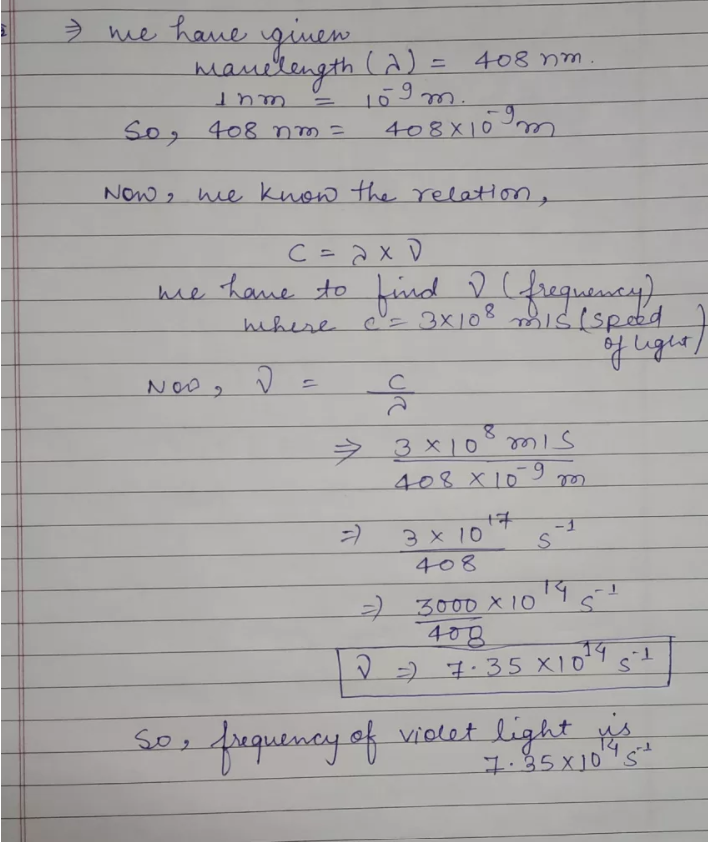 ⇒ we have given
wavelength (λ) = 408 nm.
1 nm = 10⁻⁹ m.
So, 408 nm = 408×10⁻⁹ m
Now, we know the relation,
C = λ × ν
we have to find ν (frequency)
where c = 3×10⁸ m/s (speed of light)
Now, ν = C/λ
⇒ 3 × 10⁸ m/s / 408 × 10⁻⁹ m
⇒ 3 × 10¹⁷ / 408 s⁻¹
⇒ 3000 × 10¹⁴ / 408 s⁻¹
ν ⇒ 7.35 × 10¹⁴ s⁻¹
So, frequency of violet light is
7.35 × 10¹⁴ s⁻¹